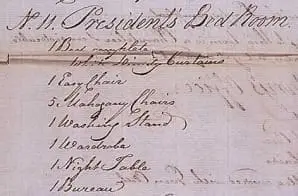 N. 11. President's Bed Room.
1 Bed compleat
with Dimity Curtains
1 Easy Chair
5 Mahogany Chairs
1 Washing Stand
1 Wardrobe
1 Night Table
1 Bureau